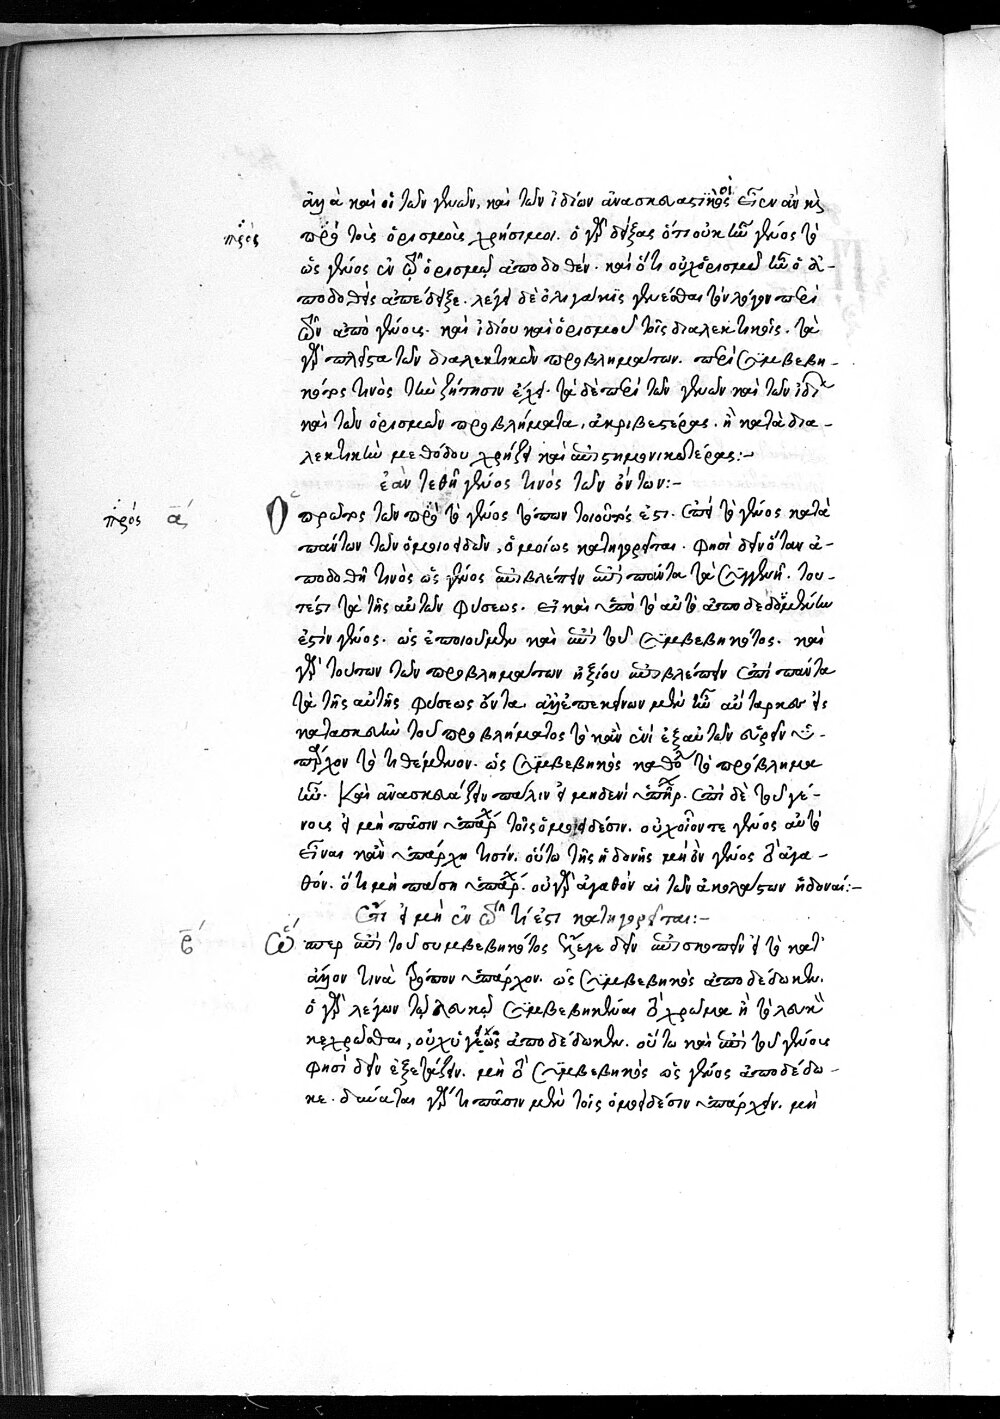 ἀλλὰ καὶ οἱ τῶν γενῶν, καὶ τῶν ἰδίων ἀνασκευαστικοὶ εἶεν ἂν καὶ
πρὸς τοὺς ὁρισμοὺς χρήσιμοι. ὁ γὰρ δείξας ὅτι οὐκ ἦν γένος τὸ
ὡς γένος ἐν τῷ ὁρισμῷ ἀποδοθέν. καὶ ὅτι οὐχ ὁρισμὸς ἦν ὁ ἀ-
ποδοθεὶς ἀπέδειξε. λέγει δὲ ὀλιγάκις γενέσθαι τὸν λόγον περὶ
τῶν ἀπὸ γένους. καὶ ἰδίου καὶ ὁρισμοῦ τοῖς διαλεκτικοῖς. τὰ
γὰρ πλεῖστα τῶν διαλεκτικῶν προβλημάτων. περὶ συμβεβη-
κότος τινὸς τὴν ζήτησιν ἔχει. τὰ δὲ περὶ τῶν γενῶν καὶ τῶν ἰδί
καὶ τῶν ὁρισμῶν προβλήματα, ἀκριβεστέρας. ἢ κατὰ δια-
λεκτικὴν μεθόδου χρῄζει καὶ ἐπιστημονικωτέρας:-
ἐὰν τεθῇ γένος τινὸς τῶν ὄντων:-
πρὸς α Ὁ πρῶτος τῶν πρὸς τὸ γένος τόπων τοιοῦτός ἐστι. ἐπεὶ τὸ γένος κατὰ
πάντων τῶν ὁμοιοειδῶν, ὁμοίως κατηγορεῖται. φησὶ δεῖν ὅταν ἀ-
ποδοθῇ τινὸς ὡς γένος ἐπιβλέπειν ἐπὶ πάντα τὰ συγγενῆ. του-
τέστι τὰ τῆς αὐτῶν φύσεως. εἰ καὶ ὑπὸ τὸ αὐτὸ ἀποδεδομένον
ἐστὶν γένος. ὡς ἐποιοῦμεν καὶ ἐπὶ τοῦ συμβεβηκότος. καὶ
γὰρ τούτων τῶν προβλημάτων ἠξίου ἐπιβλέπειν ἐπὶ πάντα
τὰ τῆς αὐτῆς φύσεως ὄντα. ἀλλ' ἐπ' ἐκείνων μὲν ἦν αὔταρκες εἰς
κατασκευὴν τοῦ προβλήματος τὸ κἂν ἑνὶ ἐξ αὐτῶν εὑρεῖν ὑ-
πάρχον τὸ τιθέμενον. ὡς συμβεβηκὸς καθ' οὗ τὸ πρόβλημα
ἦν. καὶ ἀνασκευάζειν πάλιν εἰ μηδενὶ ὑπῆρχ. ἐπὶ δὲ τοῦ γέ-
νους εἰ μὴ πᾶσιν ὑπάρχ τοῖς ὁμοιειδέσιν. οὐχ οἷόν τε γένος αὐτὸ
εἶναι κἂν ὑπάρχῃ τισίν. οὕτω τῆς ἡδονῆς μὴ ὂν γένος τὸ ἀγα-
θόν. ὅτι μὴ πάσῃ ὑπάρχ. οὐ γὰρ ἀγαθὸν αἱ τῶν ἀκολάστων ἡδοναί:-
ἔτι εἰ μὴ ἐν τῷ τί ἐστι κατηγορεῖται:-
β Ὥσπερ ἐπὶ τοῦ συμβεβηκότος ἔλεγε δεῖν ἐπισκοπεῖν εἰ τὸ κατ'
ἄλλον τινὰ τρόπον ὑπάρχον. ὡς συμβεβηκὸς ἀποδέδωκεν.
ὁ γὰρ λέγων τῷ λευκῷ συμβεβηκέναι τὸ χρῶμα ἢ τὸ λευκὸν
κεχρῶσθαι, οὐχ ὑγιῶς ἀποδέδωκεν. οὕτω καὶ ἐπὶ τοῦ γένους
φησὶ δεῖν ἐξετάζειν. μὴ τὸ συμβεβηκὸς ὡς γένος ἀποδέδω-
κε. δύναται γάρ τι πᾶσιν μὲν τοῖς ὁμοειδέσιν ὑπάρχειν. μὴ